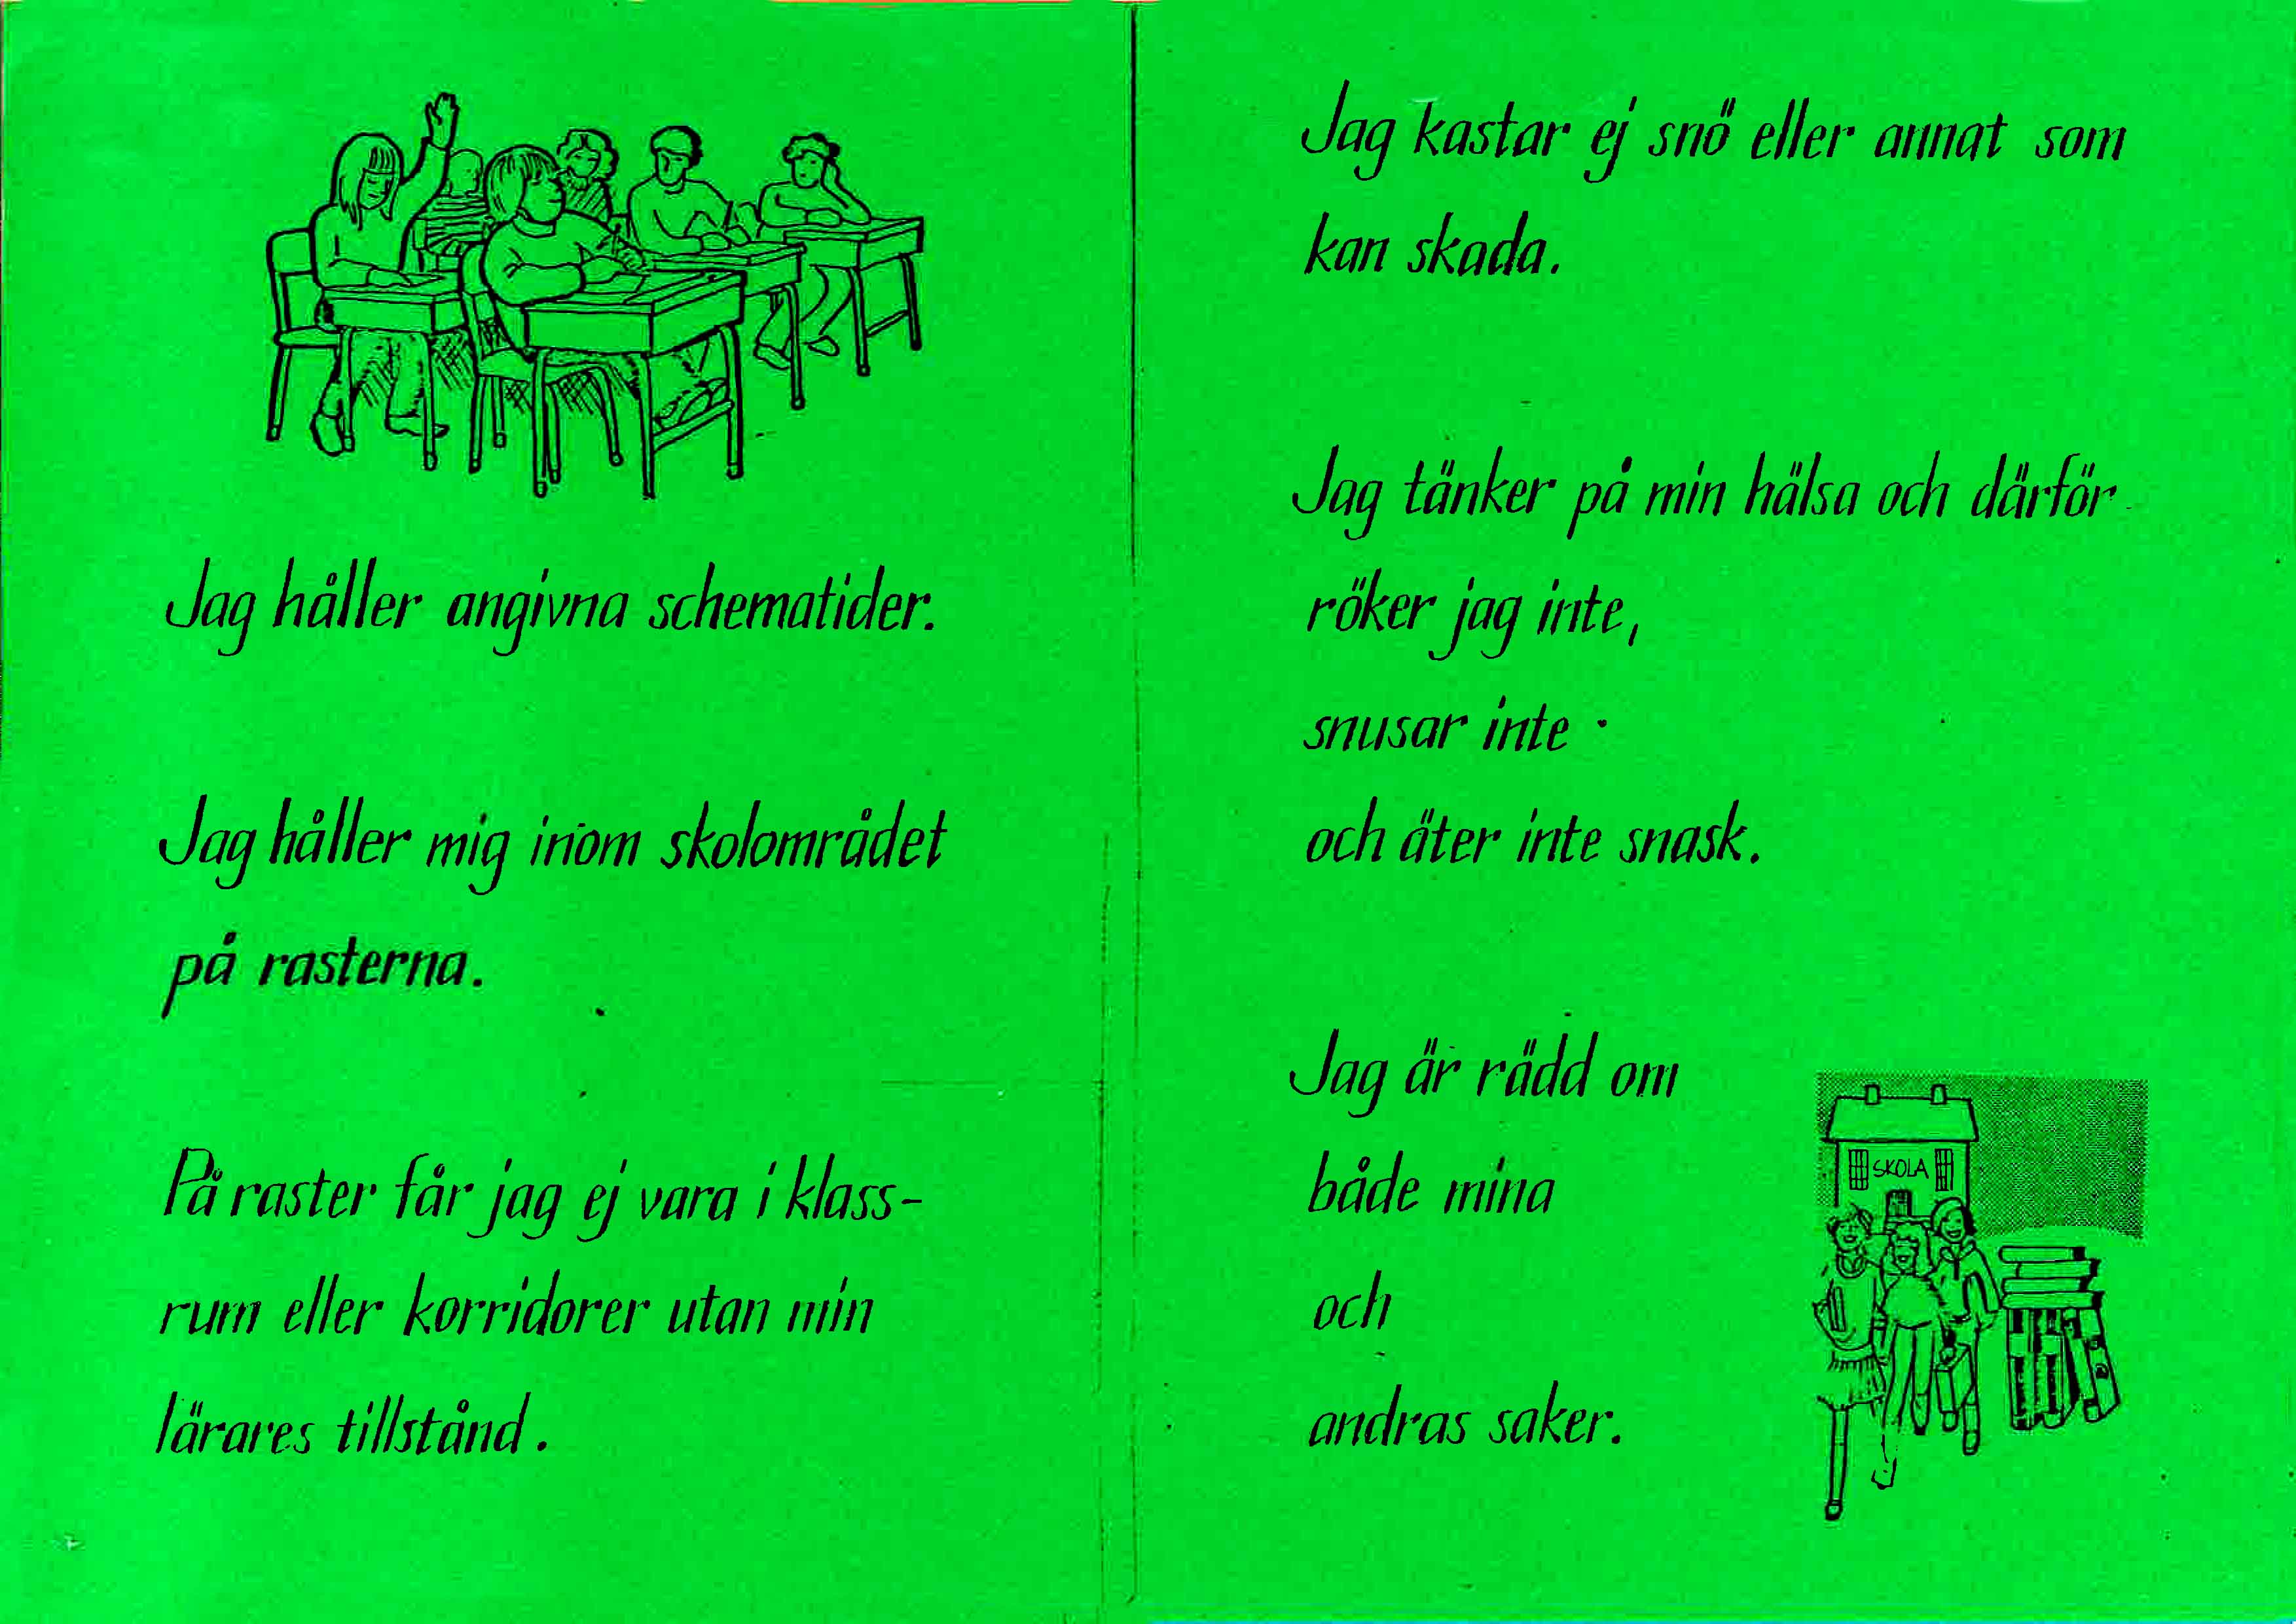 Jag håller angivna schematider.
Jag håller mig inom skolområdet
på rasterna.
På raster får jag ej vara i klass-
rum eller korridorer utan min
lärares tillstånd.
Jag kastar ej snö eller annat som
kan skada.
Jag tänker på min hälsa och därför
röker jag inte,
snusar inte
och äter inte snask.
Jag är rädd om
både mina
och
andras saker.
SKOLA